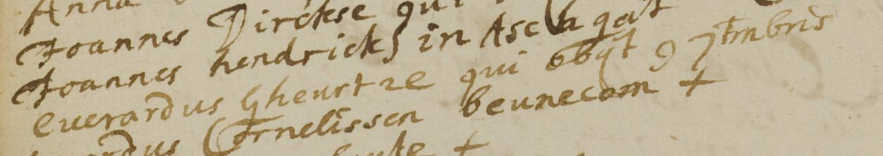 Anna
Joannes Dirckse qui
Joannes hendricks in Aschgat
everardus Gheurtze qui obyt 9 7tmbris
Cornelissen beunecom +
+